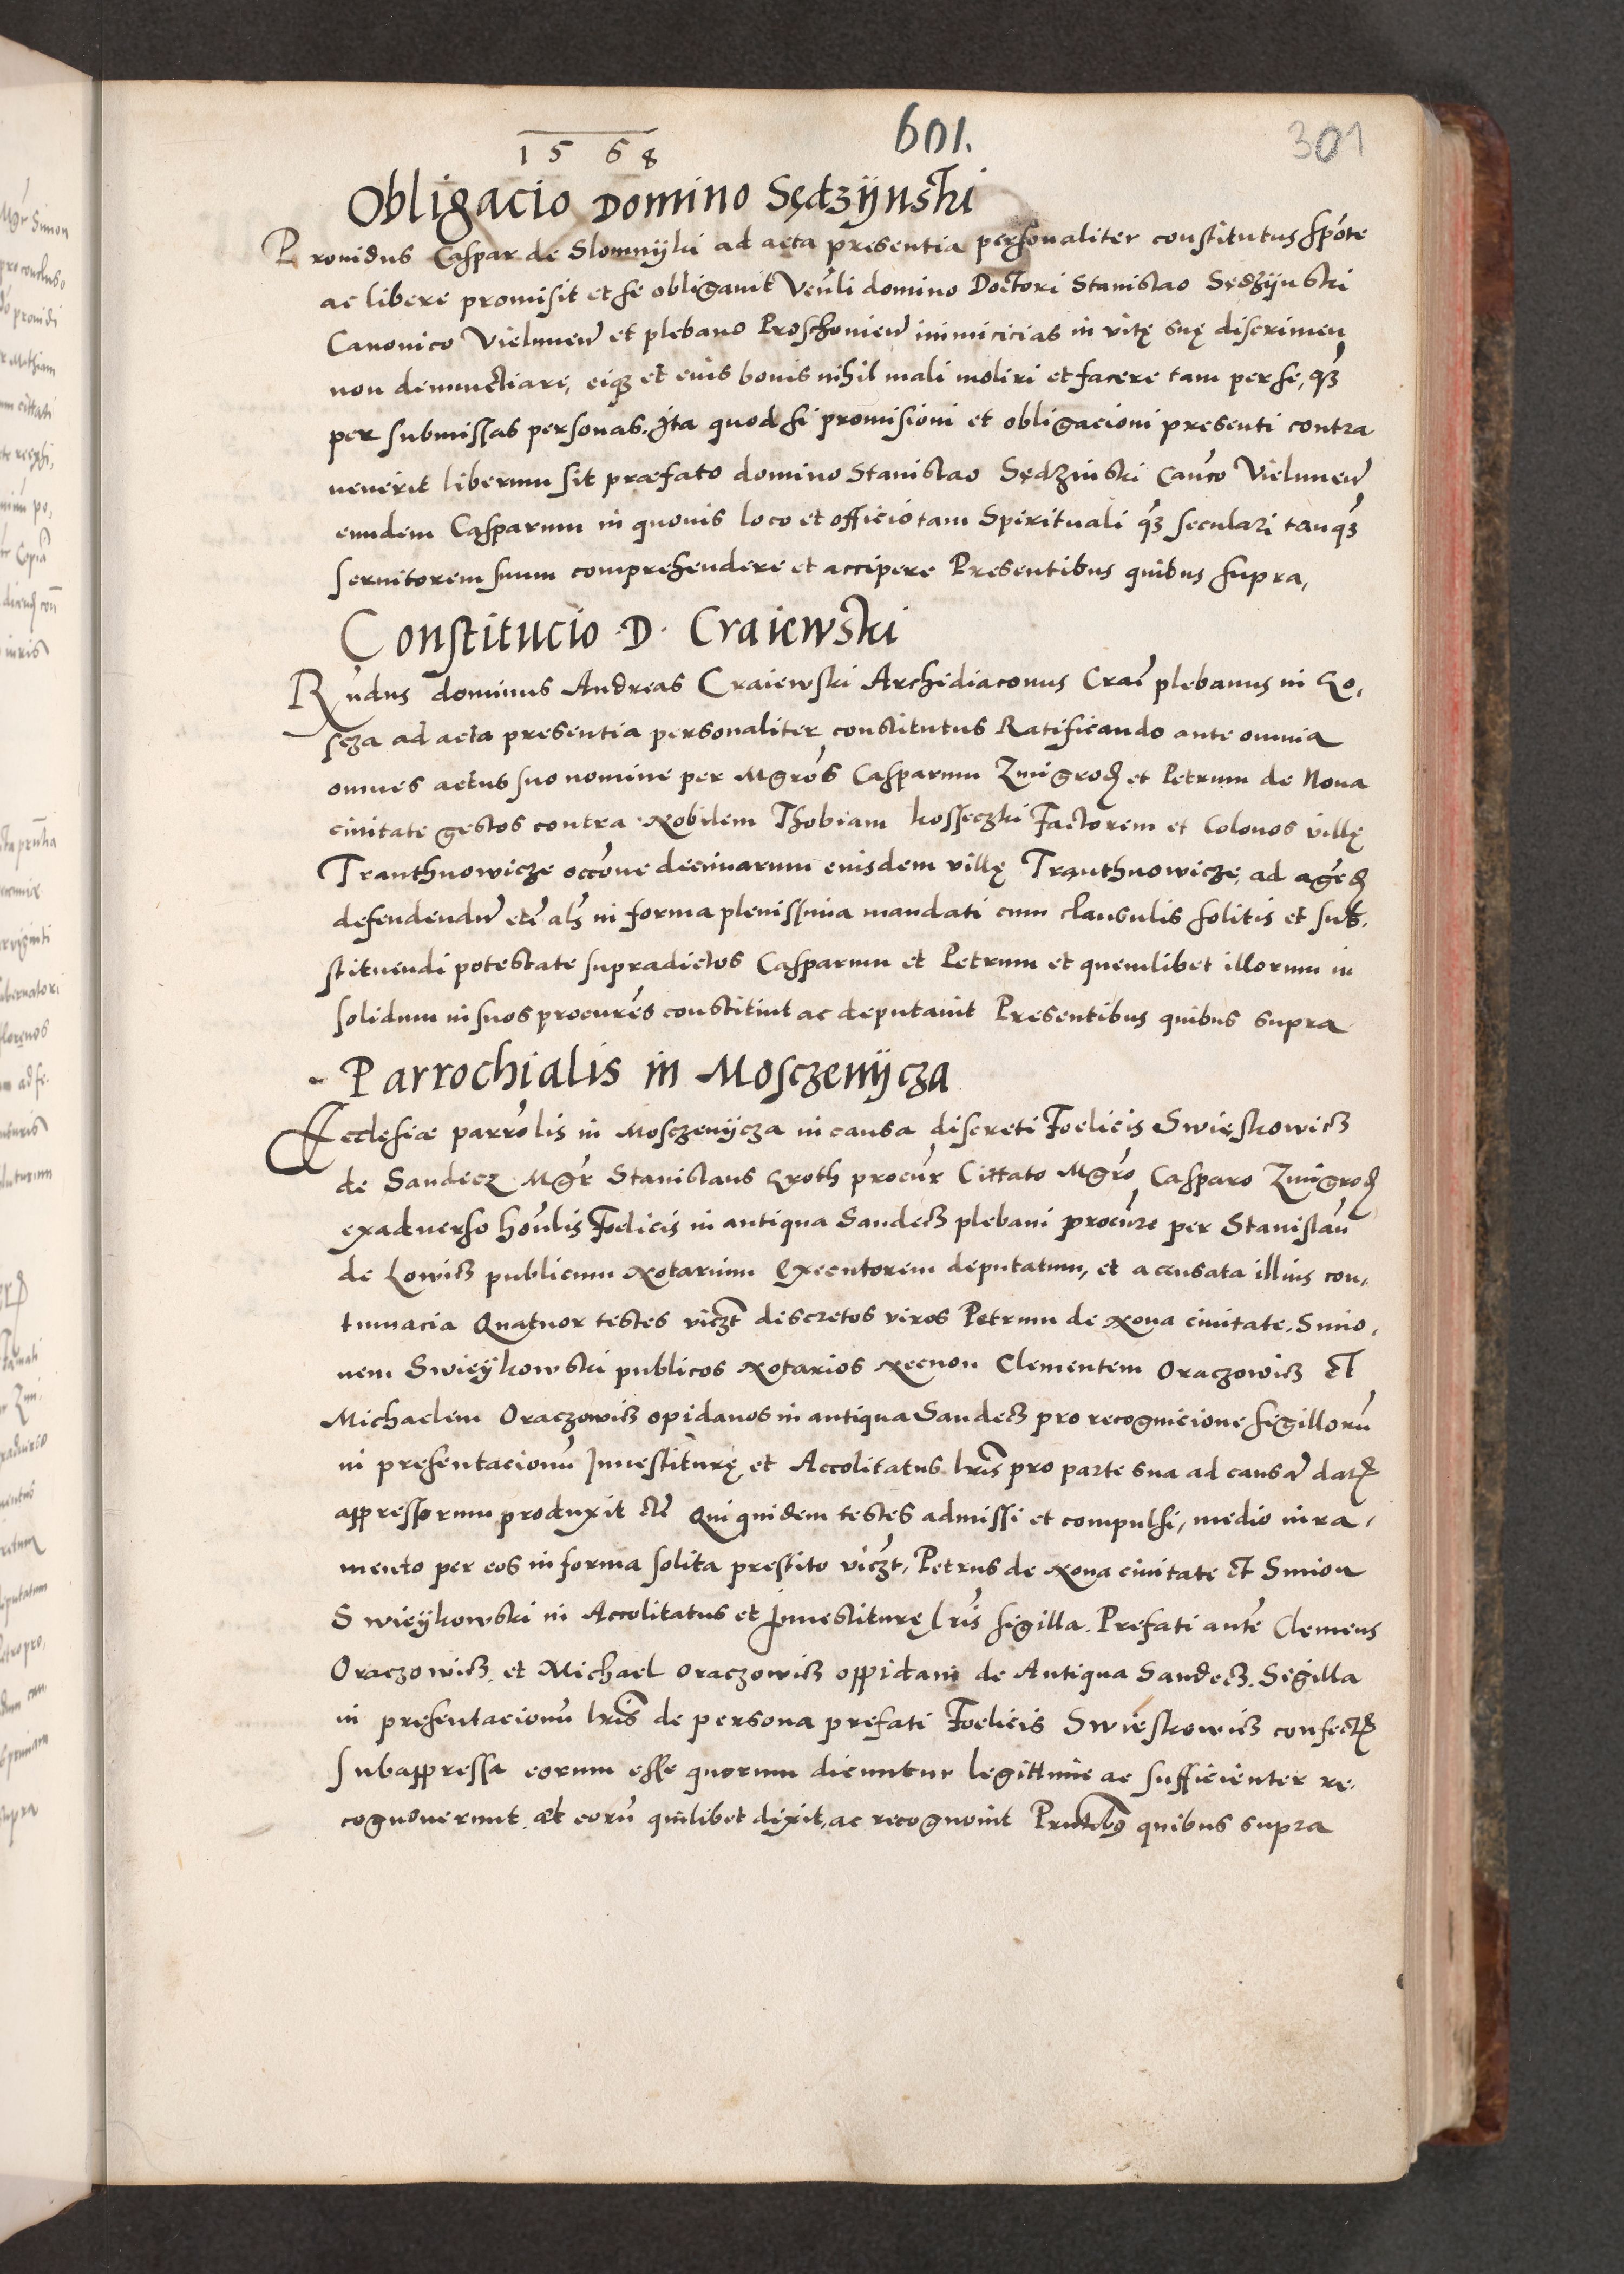 1568
601.
301
Obligacio Domino Sędzÿnski
Prouidus Caspar de Slomnÿki ad acta presentia personaliter constitutus spōte
ac libere promisit et se obligauit Veñli domino Doctori Stanislao Sędzÿnski
Canonico Vielunen et plebano Proschouien inimicicias in vitę suę discrimen
non denunctiare, eiqꝫ et eius bonis nihil mali moliri et facere tam per se, qꝫ
per submissas personas. Ita quod si promisioni et obligacioni presenti contra
uenerit liberum sit præfato domino Stanislao Sędzinski Cañco Vielunen
eundem Casparum in quouis loco et officio tam Spirituali qꝫ seculari tanqꝫ
seruitorem suum comprehendere et accipere Presentibus quibus supra,
Constitucio D. Craiewski
Rñdus dominus Andreas Craiewski Archidiaconus Crac̃ plebanus in Ko,
scza ad acta presentia personaliter constitutus Ratificando ante omnia
omnes actus suo nomine per Mgr̃os Casparum Zmigrod et Petrum de Noua
ciuitate gestos contra Nobilem Thobiam kosseczki Factorem et Colonos villę
Tranthnowicze occõne decimarum eiusdem villę Tranthnowicze, ad agend
defendendum etc̃ als̃ in forma plenissima mandati cum clausulis solitis et sub.
stituendi potestate supradictos Casparum et Petrum et quemlibet illorum in
solidum in suos procur̃es constituit ac deputauit Presentibus quibus supra
Parrochialis in Mosczenÿcza
Ecclesiæ parrõlis in Mosczenÿcza in causa discreti Foelicis Swięskowicz
de Sandecz Mgr̃ Stanislaus Kroth procur̃ Cittato Mgr̃o Casparo Zmigrod
exaduerso hoñlis Foelicis in antiqua Sandecz plebani procur̃e per Stanislaũ
de Lowicz publicum Notarium Executorem deputatum, et accusata illius con,
tumacia Quatuor testes viczt discretos viros Petrum de Noua ciuitate. Simo,
nem Swieÿkowski publicos Notarios Necnon Clementem Oraczowicz et
Michaelem Oraczowicz opidanos in antiqua Sandecz pro recognicione sigillorũ
in presentacionũ Inuestiturę et Accolitatus lr̃is pro parte sua ad causam datꝝ
appressorum produxit etc̃ Qui quidem testes admissi et compulsi, medio iura,
mento per eos in forma solita prestito viczt. Petrus de Noua ciuitate et Simon
Swieÿkowski in Accolitatus et Inuestiturę lr̃is sigilla. Prefati aut̃e Clemens
Oraczowicz. et Michael Oraczowicz oppidani de Antiqua Sandecz. Sigilla
in presentacionũ lr̃is de persona prefati Foelicis Swieskowicz confectꝝ
subappressa eorum esse quorum dicuntur legittime ac sufficienter re,
cognouerunt. æt eorũ quilibet dixit, ac recognouit Pr̃ntibꝰ quibus supra